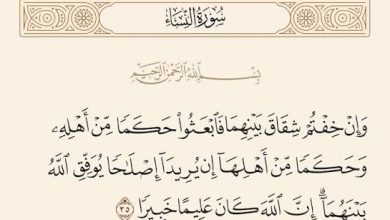 سُورَةُ النِّسَاءِ
بِسْمِ اللَّهِ الرَّحْمَٰنِ الرَّحِيمِ
وَإِنْ خِفْتُمْ شِقَاقَ بَيْنِهِمَا فَٱبْعَثُوا۟ حَكَمًا مِّنْ أَهْلِهِۦ
وَحَكَمًا مِّنْ أَهْلِهَآ إِن يُرِيدَآ إِصْلَٰحًا يُوَفِّقِ ٱللَّهُ
بَيْنَهُمَآ ۗ إِنَّ ٱللَّهَ كَانَ عَلِيمًا خَبِيرًا ٣٥